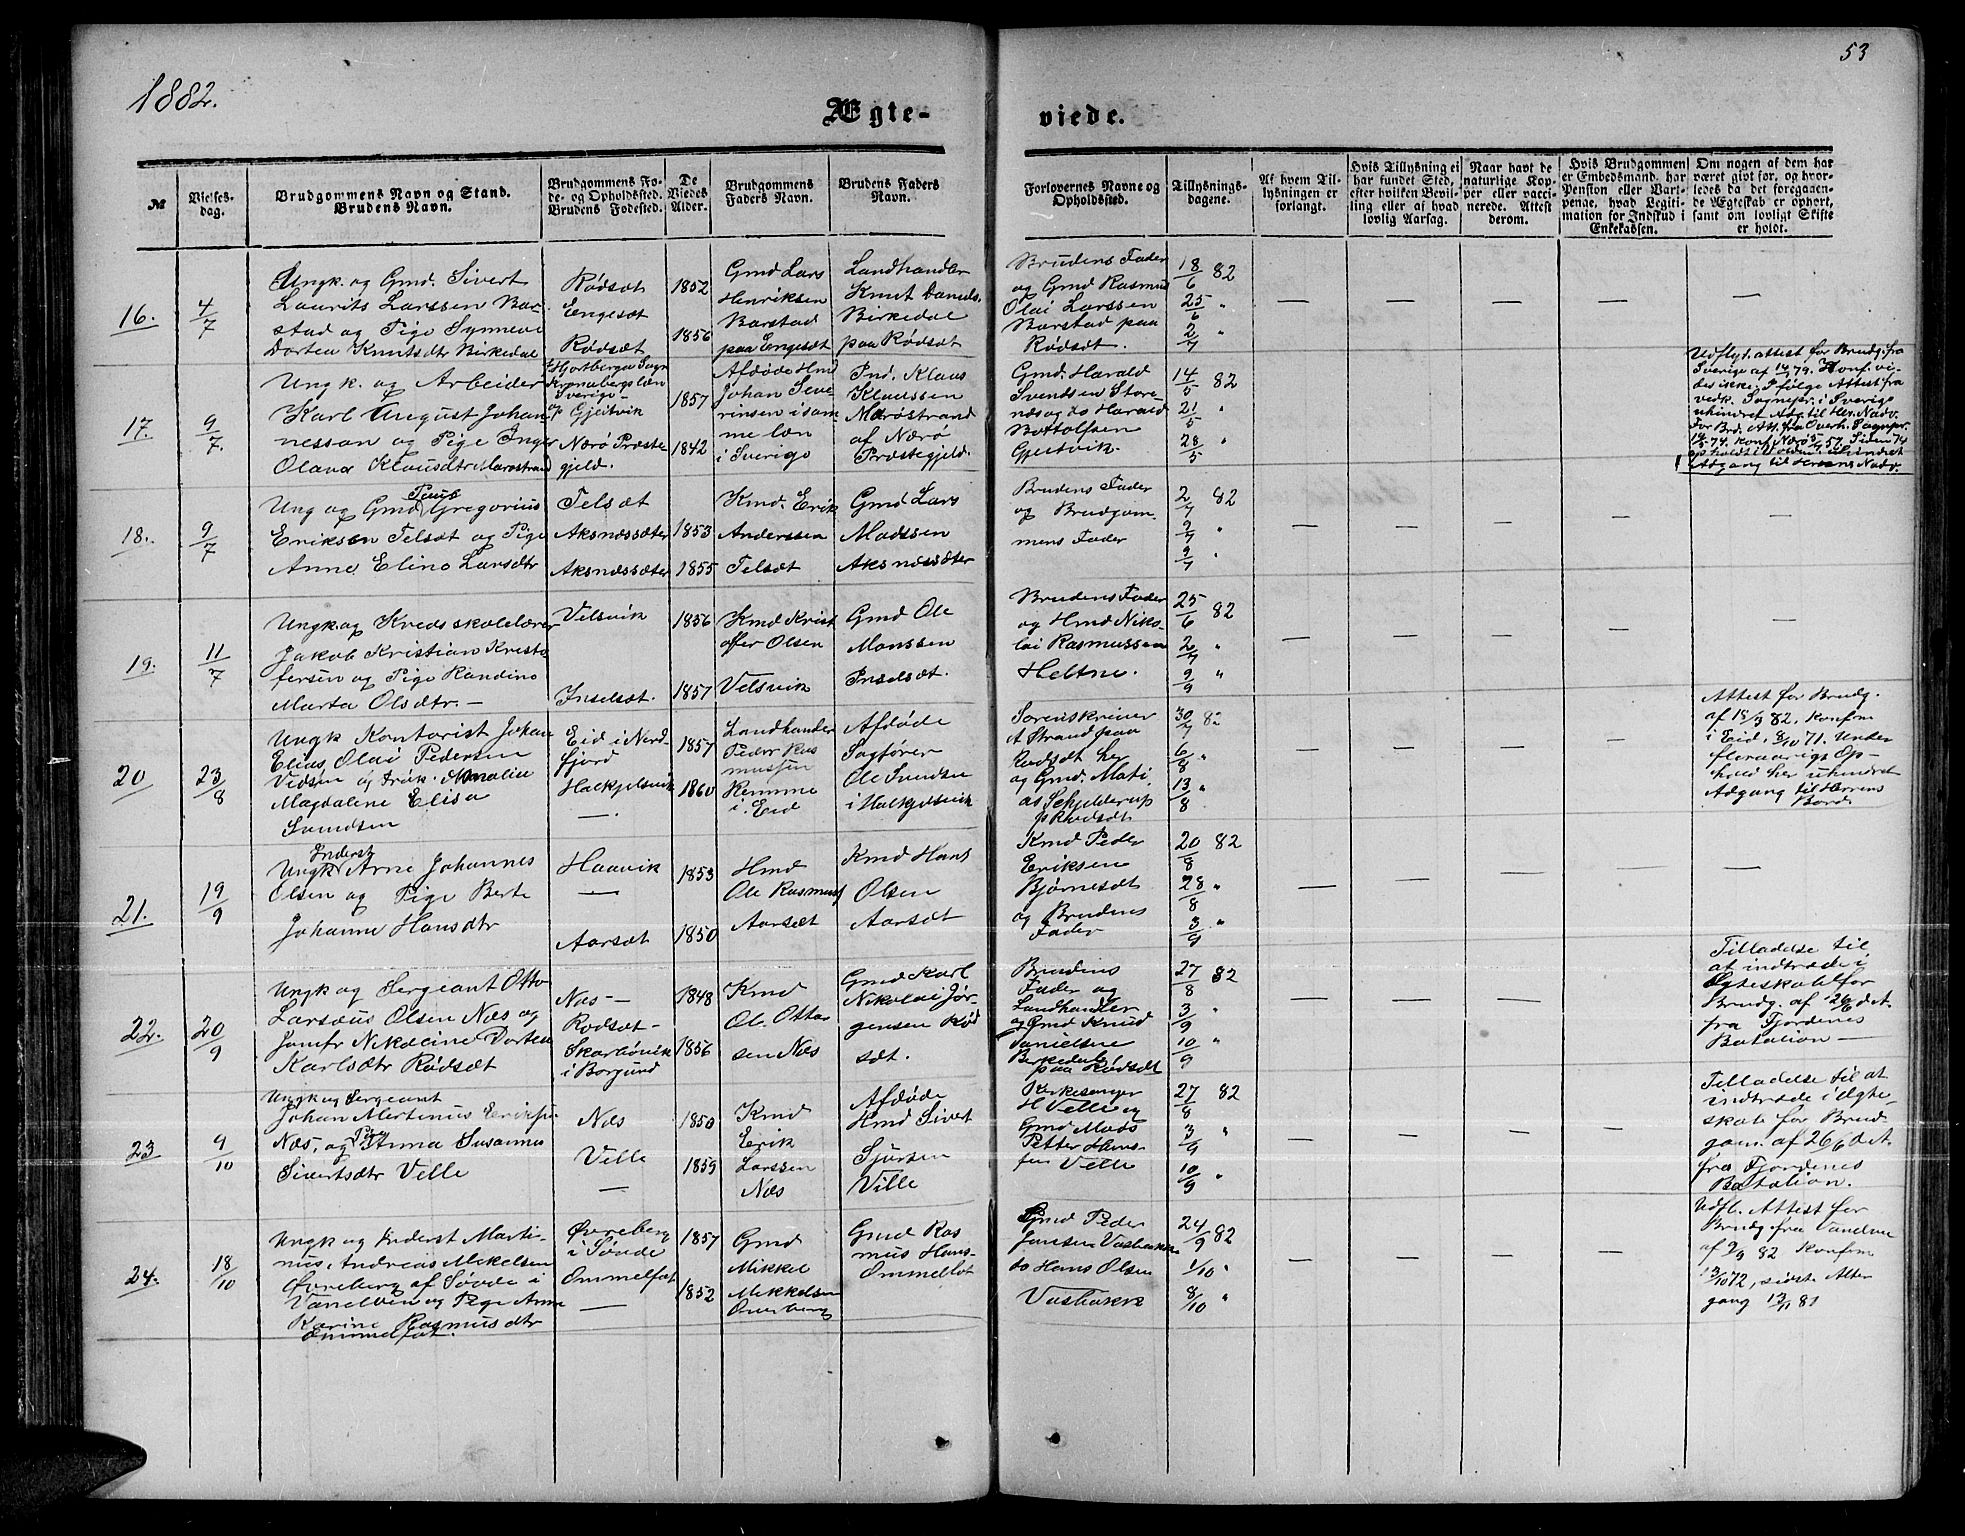 1882.
53
Ægte-
viede.
№
Vielses-
dag.
Brudgommens Navn og Stand.
Brudens Navn.
Brudgommens Fø-
de- og Opholdssted.
Brudens Fødested.
De
Viedes
Alder.
Brudgommens
Faders Navn.
Brudens Faders
Navn.
Forlovernes Navne og
Opholdssted.
Tillysnings-
dagene.
Af hvem Til-
lysningen er
forlangt.
Hvis Tillysning ei
har fundet Sted,
efter hvilken Bevil-
ling eller af hvad
lovlig Aarsag.
Naar havt de
naturlige Kop-
per eller vacci-
nerede. Attest
derom.
Hvis Brudgommen
er Embedsmand, har
Pension eller Vart-
penge, hvad Legiti-
mation for Indskud i
Enkekassen.
Om nogen af dem har
været gift før, og hvor-
ledes da det foregaaen-
de Ægteskab er ophørt,
samt om lovligt Skifte
er holdt.
16.
4/7
Ungk. og Gmd. Sivert
Laurits Larssen Bar-
stad og Pige Synneve
Dortea Knutsdtr Birkedal
Rødsæt
Engesæt
Rødsæt
1852
1856
Gmd Lars
Henriksen
Barstad
paa Engesæt
Landhandler
Knut Daniels.
Birkedal
paa Rødsæt
Brudens Fader
og Gmd Rasmus
Olai Larssen
Barstad paa
Rødsæt.
18/6 82
25/6 "
2/7 "
17.
9/7.
Ungk. og Arbeider
Karl August Johan-
nesson og Pige Inger
Olana Klausdtr Marøstrand
Hjortberga Sogn
Kronobergs læn
Sverige-
Gjeitvik
Nærø Præste-
gjeld.
1857
1842
Afdøde Hmd
Johan Seve-
rinsen i sam-
me læn
i Sverige
Ind. Klaus
Klaussen
Marøstrand
af Nærø
Præstegjeld.
Gmd. Harald
Svendsen Store-
næs og do Harald
Bottolfsen
Gjeitvik.
14/5 82
21/5 "
28/5 "
Udflyt. attest for Brudg. fra
Sverige af 14/ 79. Konf. vi-
des ikke. Ifølge Attest fra
vedk. Sognepr. i Sverige
uhindret Adg. til Her. Nadv.
For Brd. Att. fra Overh. Sognpr.
74. Konf. Nærø 57. Siden 74
opholdt i Volden. Uhindret
Adgang til Herrens Nadv.
18.
9/7
Ung og Gmd Gregorius
Eriksen Telsæt og Pige
Anne Eline Larsdtr
Telsæt
Aksnæssæter
Aksnæssæter
1853
1855
Kmd. Erik
Anderssen
Telsæt
Gmd Lars
Madssen
Aksnæssæter
Brudens Fader
og Brudgom-
mens Fader
2/7 82
2/7 "
9/7 "
19.
11/7
Ungk og Kredsskolelærer
Jakob Kristian Kristo-
fersen og Pige Randine
Marta Olsdtr. —
Velsvik
Inselsæt.
1856
1857
Kmd Krist
offer Olsen
Velsvik
Gmd Ole
Monssen
Inselsæt.
Brudens Fader
og Hmd Niko-
lai Rasmussen
Heltne.
25/6 82
2/7 "
9/9 "
20
23/8
Ungk Kontorist Johan
Elias Olai Pedersen
Vedsen og Frøk. Amalie
Magdalene Elisa
Svendsen
Eid i Nord-
fjord
Halkjelsvik
1857
1860
Landhandler
Peder Ras
mussen
Remme
i Eid
Afdøde
Sagfører
Ole Svendsen
i Halkjelsvik
Sorenskriver
A Strand paa
Rødsæt her
og Gmd. Mati
as Schjelderup
p. Rødsæt
30/7 82
6/8 "
13/8 "
Attest for Brudg.
af 15/9 82. Konfirm
i Eid, 8/10 71. Under
fleraarigs Op-
hold her uhindret
Adgang til Herrens
Bord.
21.
19/9
Inderst
Ungk Arne Johannes
Olsen og Pige Berte
Johanne Hansdtr
Haavik
Aarsæt
1853
1850
Hmd
Ole Rasmuss
Aarsæt
Kmd Hans
Olsen
Aarsæt
Kmd Peder
Eriksen
Bjørnesæt
og Brudens
Fader
20/8 82
28/8 "
3/9 "
22.
20/9
Ungk og Sergeant Otto
Larsæus Olsen Næs og
Jomfr Nikoline Dortea
Karlsdtr Rødsæt
Næs-
Rødsæt-
Skarbøvik
i Borgund
1848
1856
Kmd
Ol. Otto-
sen Næs
Gmd Karl
Nikolai Jør-
gensen Rød
sæt.
Brudens
Fader og
Landhandler
og Gmd Knud
Danielsen
Birkedal
paa Rødsæt
27/8 82
3/9 "
10/9 "
Tilladelse til
at indtræde i
Ægteskab for
Brudg. af 26/6 det.
fra Fjordenes
Batalion —
23
9/10
Ungk og Sergeant
Johan Martinus Eriksen
Næs, og Pige Anna Susanna
Sivertsdtr Velle
Næs
Velle
1850
1859
Kmd
Erik
Larssen
Næs
Afdøde
Kmd Sivert
Sjursen
Ville
Kirkesanger
H Velle og
Gmd Mads
Petter Han-
sen Velle
27/8 82
3/9 "
10/9 "
Tilladelse til at
indtræde i Ægte-
skab for Brud-
gom. af 26/6 det.
fra Fjordenes
Batalion.
24.
18/10
Ungk og Inderst Marti-
nus Andreas Mikelsen
Øvreberg af Søvde i
Vanelven og Pige Anne
Karine Rasmusdtr
Ømmelfot.
Øvreberg
i Søvde
Ømmelfot
1857
1852
Gmd
Mikkel
Mikkelsen
Øvreberg
Gmd Ras
mus Hans-
Ømmelfot
Gmd Peder
Jensen Vasbakke
do Hans Olsen
Vasbakk
24/9 82
1/10 "
8/10 "
Udfl. Attest for
Brudg fra Vanelven
af 9/9 82 Konfirm
/10 72, sidste Alter
gang 81